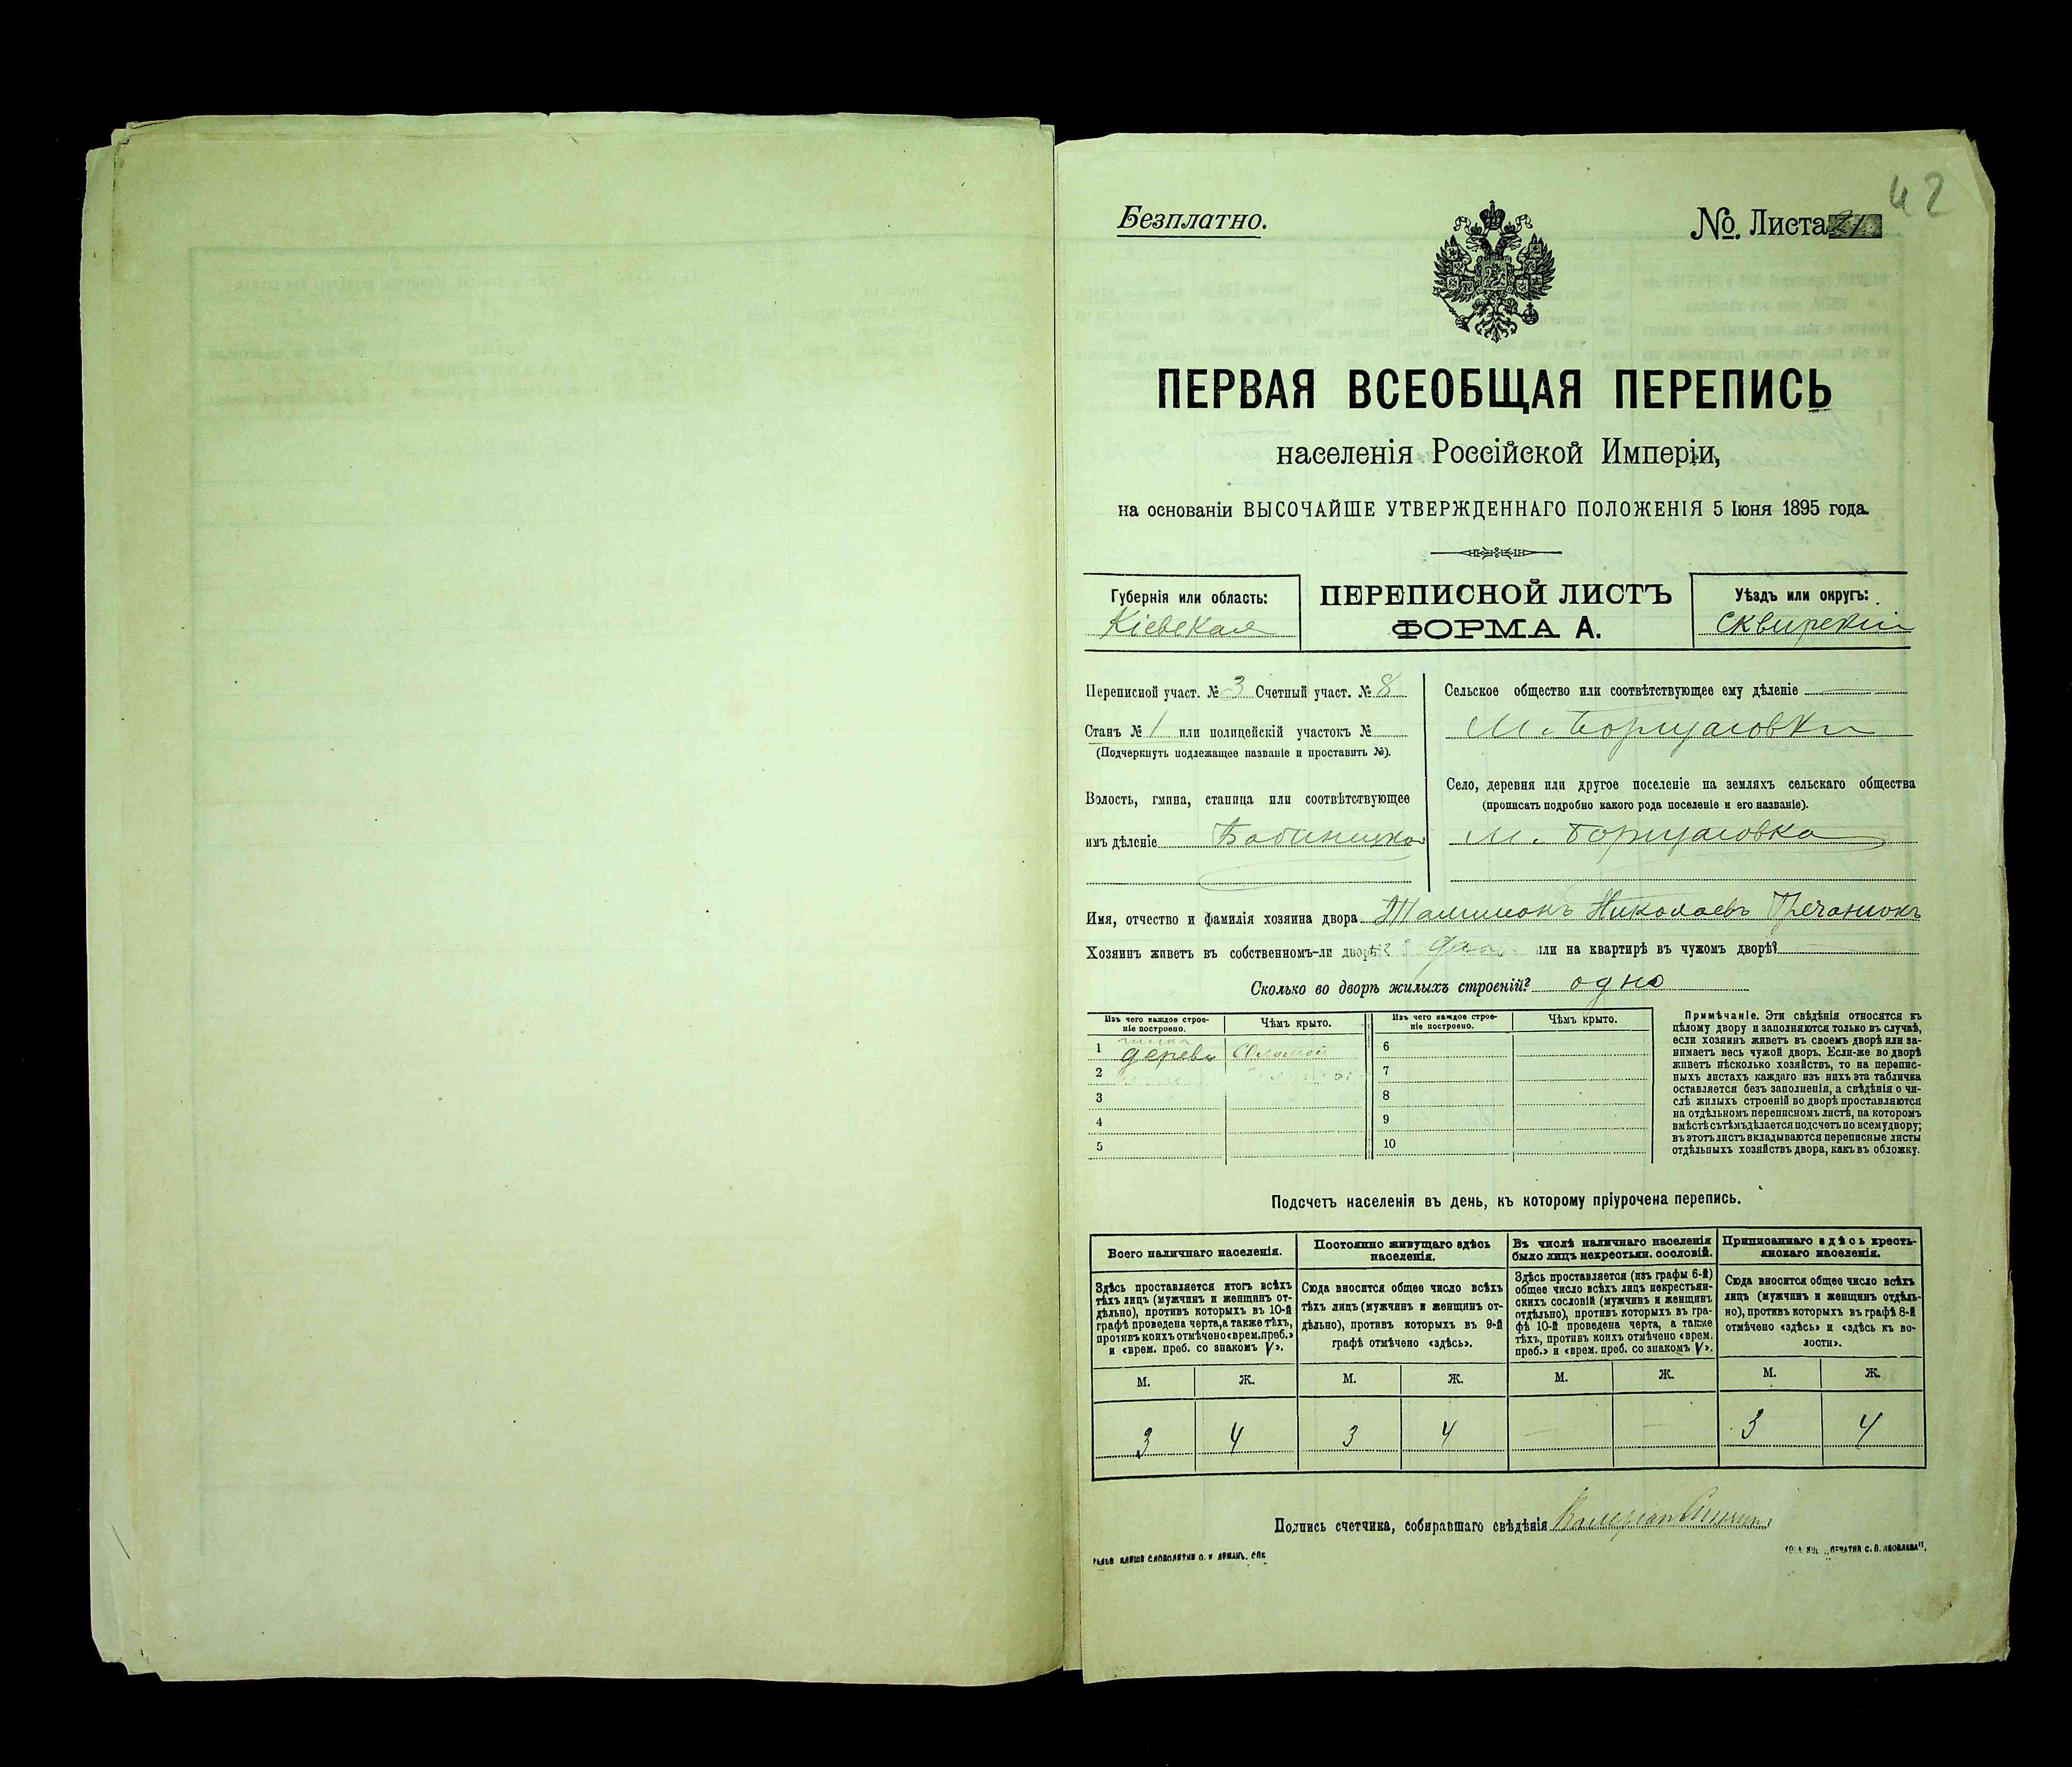 42
Безплатно.
No. Листа 21
ПЕРВАЯ ВСЕОБЩАЯ ПЕРЕПИСЬ
населенія Россійской Имперіи,
на основаніи ВЫСОЧАЙШЕ УТВЕРЖДЕННАГО ПОЛОЖЕНІЯ 5 Іюня 1895 года.
Губернія или область:
Кіевская
ПЕРЕПИСНОЙ ЛИСТЪ
ФОРМА А.
Уѣздъ или округъ:
Сквирскій
Переписной участ. № 3 Счетный участ. № 8
Станъ № 1 или полицейскій участокъ №
(Подчеркнуть подлежащее названіе и проставить №).
Волость, гмина, станица или соотвѣтствующее
имъ дѣленіе
Сельское общество или соотвѣтствующее ему дѣленіе
М. Борщаговки
Село, деревня или другое поселеніе на земляхъ сельскаго общества
(прописать подробно какого рода поселеніе и его названіе).
М. Борщаговка
Имя, отчество и фамилія хозяина двора Николаевъ
Хозяинъ живетъ въ собственномъ-ли дворѣ? или на квартирѣ въ чужомъ дворѣ?
Сколько во дворѣ жилыхъ строеній? одно
Изъ чего каждое строеніе построено.
Чѣмъ крыто.
Изъ чего каждое строеніе построено.
Чѣмъ крыто.
1 дерева Соломой
2
3
4
5
6
7
8
9
10
Примѣчаніе. Эти свѣдѣнія относятся къ
цѣлому двору и заполняются только въ случаѣ,
если хозяинъ живетъ въ своемъ дворѣ или за-
нимаетъ весь чужой дворъ. Если-же во дворѣ
живетъ нѣсколько хозяйствъ, то на перепис-
ныхъ листахъ каждаго изъ нихъ эта табличка
оставляется безъ заполненія, а свѣдѣнія о чи-
слѣ жилыхъ строеній во дворѣ проставляются
на отдѣльномъ переписномъ листѣ, на которомъ
вмѣстѣ съ тѣмъ дѣлается подсчетъ по всему двору;
въ этотъ листъ вкладываются переписные листы
отдѣльныхъ хозяйствъ двора, какъ въ обложку.
Подсчетъ населенія въ день, къ которому пріурочена перепись.
Всего наличнаго населенія.
Здѣсь проставляется итогъ всѣхъ
тѣхъ лицъ (мужчинъ и женщинъ от-
дѣльно), противъ которыхъ въ 10-й
графѣ проведена черта, а также тѣхъ,
противъ коихъ отмѣчено «врем. преб.»
и «врем. преб. со знакомъ V».
Постоянно живущаго здѣсь
населенія.
Сюда вносится общее число всѣхъ
тѣхъ лицъ (мужчинъ и женщинъ от-
дѣльно), противъ которыхъ въ 9-й
графѣ отмѣчено «здѣсь».
Въ числѣ наличнаго населенія
было лицъ некрестьян. сословій.
Здѣсь проставляется (изъ графы 6-й)
общее число всѣхъ лицъ некрестьян-
скихъ сословій (мужчинъ и женщинъ
отдѣльно), противъ которыхъ въ гра-
фѣ 10-й проведена черта, а также
тѣхъ, противъ коихъ отмѣчено «врем.
преб.» и «врем. преб. со знакомъ V».
Приписаннаго здѣсь кресть-
янскаго населенія.
Сюда вносится общее число всѣхъ
лицъ (мужчинъ и женщинъ отдѣль-
но), противъ которыхъ въ графѣ 8-й
отмѣчено «здѣсь» и «здѣсь къ во-
лости».
М. Ж. М. Ж. М. Ж. М. Ж.
3 4 3 4 — — 3 4
Подпись счетчика, собиравшаго свѣдѣнія Валеріан